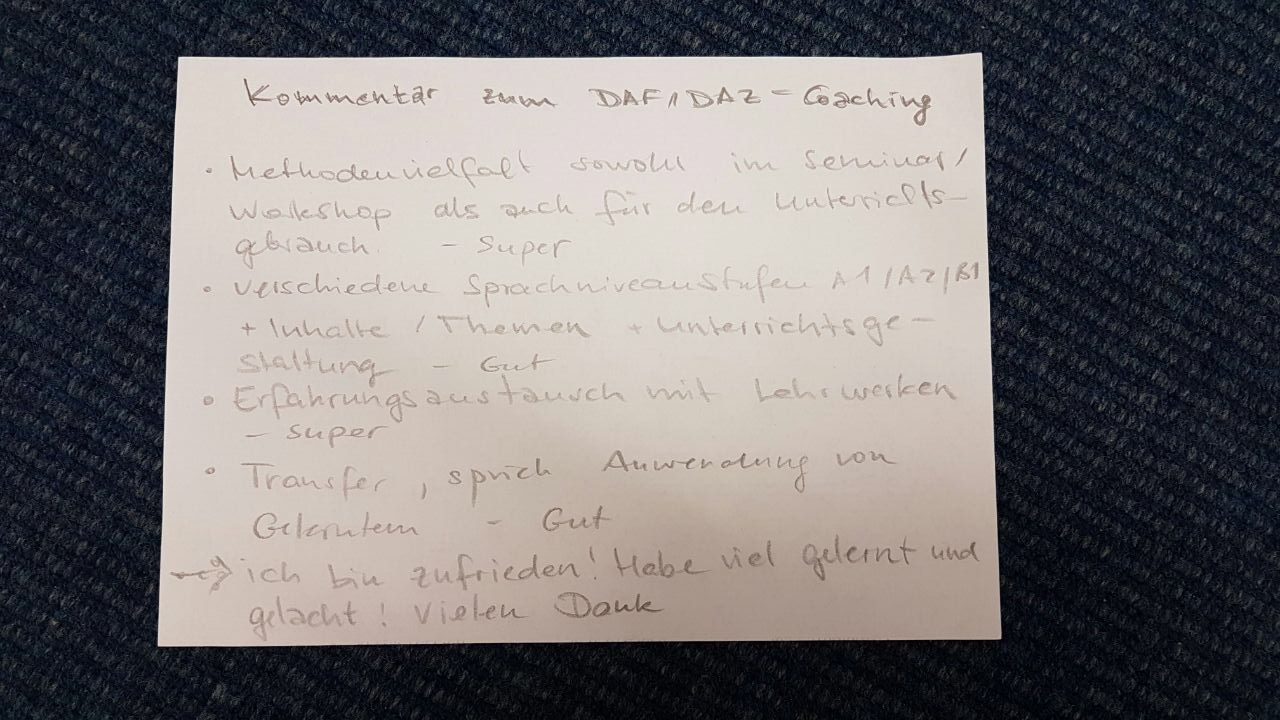 Kommentar zum DAF/DAZ - Coaching
• Methodenvielfalt sowohl im Seminar/
Workshop als auch für den Unterrichts-
gebrauch. - Super
• verschiedene Sprachniveaustufen A1/A2/B1
+ Inhalte / Themen + Unterrichtsge-
staltung - Gut
• Erfahrungsaustausch mit Lehrwerken
- super
• Transfer, sprich Anwendung von
Gelerntem - Gut
→ ich bin zufrieden! Habe viel gelernt und
gelacht! Vielen Dank